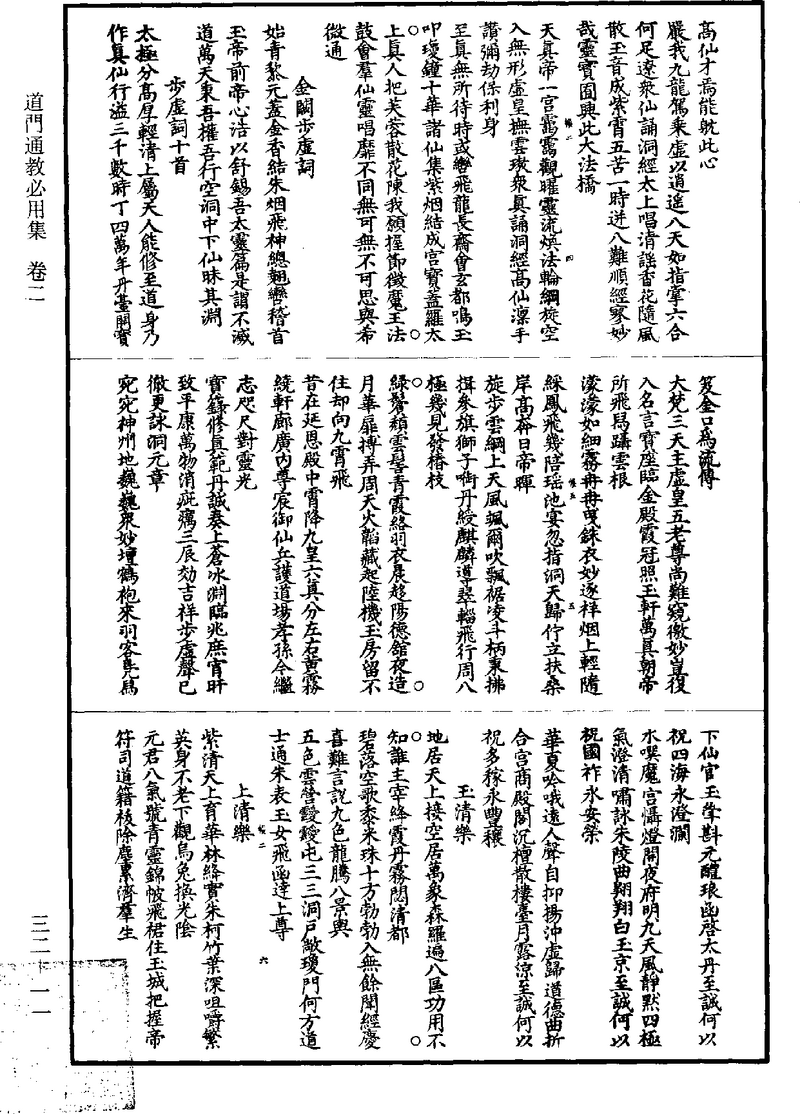 道門通教必用集　卷二
高仙才焉能就此心
嚴我九龍駕乘虛以逍遙八天如指掌六合
何足遼衆仙誦洞經太上唱清謠香花隨風
散玉音成紫霄五苦一時迸八難順經寥妙
哉靈寶囿興此大法橋
天真帝一宮靄靄觀曜靈流煥法輪綱旋空
入無形虛皇撫雲璈衆真誦洞經高仙凜手
讚彌劫保利身
至真無所待時或轡飛龍長齋會玄都鳴玉
叩瓊鐘十華諸仙集紫烟結成宮寶蓋羅太
上真人把芙蓉散花陳我願握節徵魔王法
鼓會羣仙靈唱靡不同無可無不可思與希
微通
金闕步虛詞
始青棃元蓋金香結朱烟飛神總翹轡稽首
玉帝前帝心浩以舒錫吾太靈篇是謂不滅
道萬天秉吾權吾行空洞中下仙昧其淵
步虛詞十首
太極分高厚輕清上屬天人能修至道身乃
作真仙行溢三千數時丁四萬年丹臺開寶
笈金口爲流傳
大梵三天主虛皇五老尊尚難窺微妙豈復
入名言寶座臨金殿霞冠照玉軒萬真朝帝
所飛舄躡雲根
濛濛如細霧冉冉曳銖衣妙逐祥烟上輕隨
綵鳳飛幾陪瑤池宴忽指洞天歸佇立扶桑
岸高奔日帝暉
旋步雲綱上天風颯爾吹飄裾凌斗柄秉拂
揖參旗獅子啣丹綬麒麟導翠輜飛行周八
極幾見發椿枝
綠鬢頹雲髻青霞絡羽衣晨趍陽德舘夜造
月華扉搏弄周天火韜藏起陸機玉房留不
住却向九霄飛
昔在延恩殿中霄降九皇六真分左右黄霧
繞軒廊廣内尊宸御仙兵護道場孝孫今繼
志咫尺對靈光
寶籙修真範丹誠奏上蒼冰淵臨兆庶宵旰
致平康萬物消疵癘三辰効吉祥步虛聲已
徹更詠洞元章
宛宛神州地巍巍衆妙壇鶴袍來羽客鳧舄
下仙官玉斝斟元醴琅函啓太丹至誠何以
祝四海永澄瀾
水噀魔宫懾燈開夜府明九天風靜默四極
氣澄清嘯詠朱陵曲翱翔白玉京至誠何以
祝國祚永安榮
華夏吟哦遠人聲自抑揚沖虛歸道德曲折
合宫商殿閣沉檀散樓臺月露涼至誠何以
祝多稼永豐穰
玉清樂
地居天上接空居萬象森羅遍八區功用不
知誰主宰絳霞丹霧悶清都
碧落空歌黍米珠十方勃勃入無餘聞經慶
喜難言説九色龍騰八景輿
五色雲營靉靆屯三三洞戸敞瓊門何方道
士通朱表玉女飛函達上尊
上清樂
紫清天上育華林絡實朱柯竹葉深咀嚼繁
英身不老下觀烏兔換光陰
元君八氣號青靈錦帔飛裙住玉城把握帝
符司道籍袚除塵累濟羣生
三二—一一